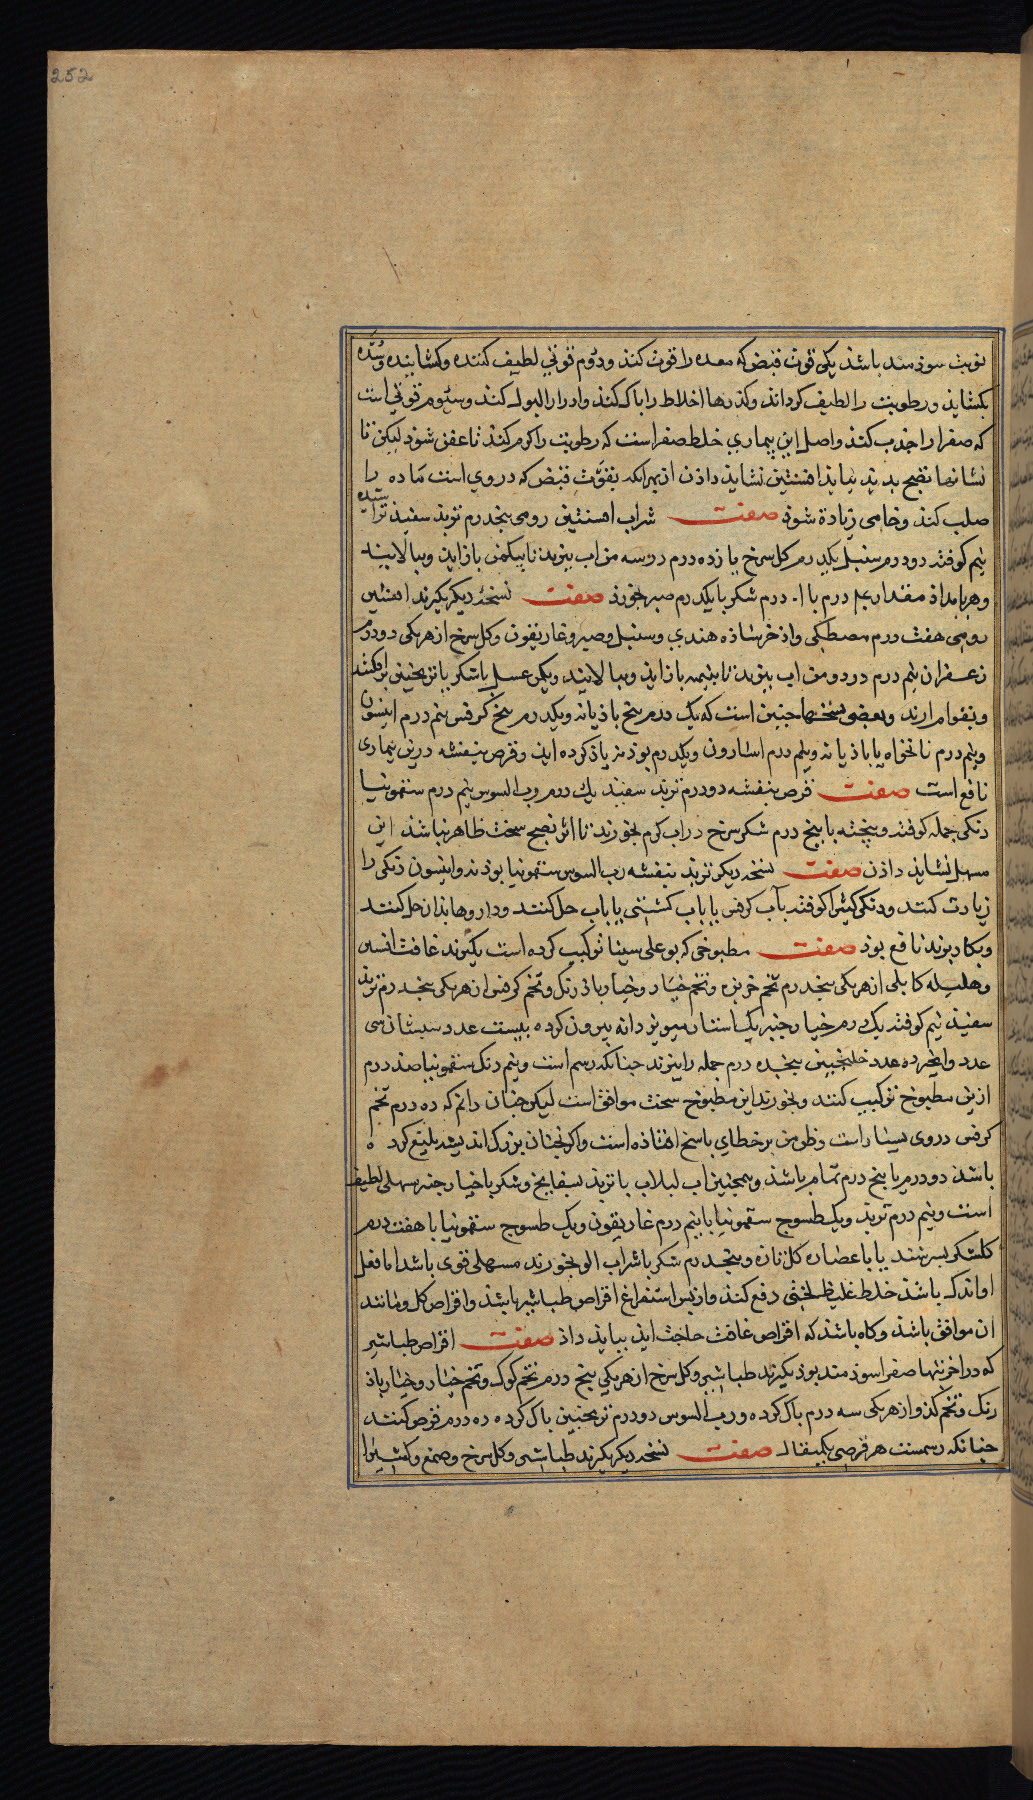 252
نوبت سوذمند باشذ یکی قوت قبض که معده را قوت کند ودوم قوتی لطیف کننده وکشاینده وسده
بکشاید ورطوبت را لطیف کرداند وکذرها اخلاط را باک کند وادرار البول کند وسیوم قوتی است
که صفرا را جذب کند واصل این بیماری خلط صفراست که رطوبت را کرم کند تا عفن شوذ لیکن تا
نشانها نضج بدید نیاید افسنتین نشاید داذن از بهر انکه بقوت قبض که دروی است ماده را
صلب کند وخامی زیادة شوذ صفت شراب افسنتین رومی پنجدرم تربد سفید تراشیده
نیم کوفته دودرم سنبل یکدرم کل سرخ یازده درم در سه من اب ببزند تا بیکمن بازاید وببالایند
وهر بامداذ مقدار درم با درم شکر با یکدرم صبر بخورذ صفت نسخه دیکر بکیرند افسنتین
رومی هفت درم مصطکی واذخر شاذه هندی وسنبل وصبر وغاریقون وکل سرخ از هر یکی دودرم
زعفران نیم درم در دو من اب ببزند تا بنیمه بازاید وببالایند ویکمن عسل یا شکر یا ترنجبین برافکنند
وبقوام ارند وبعضی نسخها جنین است که یک درم بیخ باذیانه ویکدرم بیخ کرفس نیم درم انیسون
ونیم درم نانخواه یا باذیانه ونیم درم اسارون ویکدرم بوذنه زیاذ کرده اید وقرص بنفشه درین بیماری
نافع است صفت قرص بنفشه دودرم تربد سفید یک درم رب السوس نیم درم سقمونیا
دنکی جمله کوفته وبیخته با پنج درم شکر سرخ در اب کرم بخورند تا اثر نضج سخت ظاهر نباشذ این
مسهل نشاید داذن صفت نسخه دیکر تربد بنفشه رب السوس سقمونیا بوذنه وانیسون دنکی را
زیادت کنند ودنکی کتیرا کوفته بآب کرفس یا باب کشنی یا باب حل کنند وداروها بذان حل کنند
وبکار برند نافع بوذ صفت مطبوخی که بوعلی سینا ترکیب کرده است بکیرند غافث افسنتین
وهلیله کابلی از هر یکی پنجدرم تخم خربزه وتخم خیار وخیار باذرنک وتخم کرفس از هر یکی پنجدرم تربد
سفید نیم کوفته یک درم خیارجنبر یک استار مویز دانه بیرون کرده بیست عدد سبستان سی
عدد وانجیر ده عدد خلنجبین پنجده درم جمله را ببزند جنانکه رسم است ونیم دنک سقمونیا صد درم
ازین مطبوخ ترکیب کنند وبخورند این مطبوخ سخت موافق است لیکن جنان دانم که ده درم تخم
کرفس دروی بسیار است وظن من بر خطای ناسخ افتاذه است واکر نجنان بزرک اندیشه بلیغ کرده
باشد دودرم یا پنج درم تمام باشذ وهمجنین اب لبلاب با تربد بسفایج وشکر با خیارجنبر مسهلی لطیف
است ونیم درم تربد ویک طسوج سقمونیا یا نیم درم غاریقون ویک طسوج سقمونیا با هفت درم
کلشکر بسرشند یا با عصاره کل تازه وپنجدرم شکر با شراب الو بخورند مسهلی قوی باشد اما فعل
او اندک باشذ خلط غلیظ لختی دفع کند واز بس استفراغ اقراص طباشیر باشذ واقراص کل ومانند
ان موافق باشذ وکاه باشذ که اقراص غافث حاجت اید بباید داذ صفت اقراص طباشیر
که در اخر تبها صفرا سوذمند بوذ بکیرند طباشیر وکل سرخ از هر یکی پنج درم تخم کوک وتخم خیار وخیار باذ
رنک وتخم کذو از هر یکی سه درم باک کرده ورب السوس دودرم ترنجبین باک کرده ده درم قرص کنند
جنانکه رسمست هر قرصی بکیثقال صفت نسخه دیکر بکیرند طباشیر وکل سرخ وصمغ وکتیرا